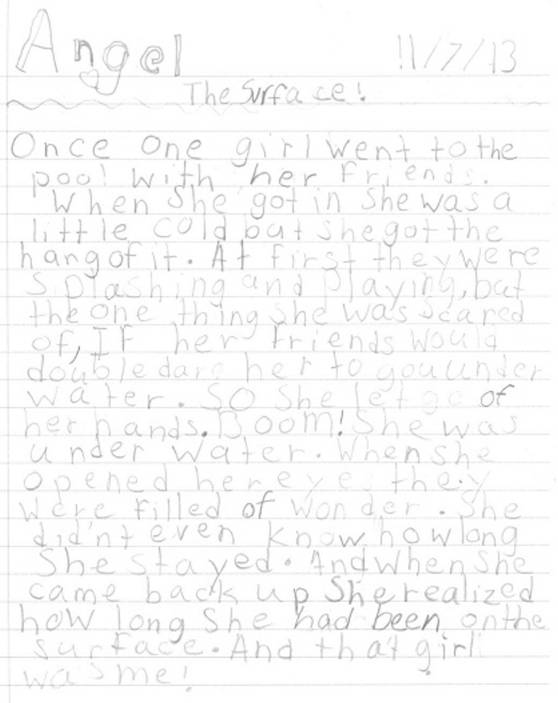 Angel 11/7/13
The Surface!
Once one girl went to the
pool with her friends.
When she got in she was a
little cold but she got the
hang of it. At first they were
splashing and playing, but
the one thing she was scared
of, IF her friends would
double dare her to go uunder
water. So She let go of
her hands. Boom! She was
under water. When she
opened her eyes they
were filled of wonder. She
did'nt even know how long
She stayed. And when She
came back up She realized
how long She had been on the
surface. And that girl
was me!